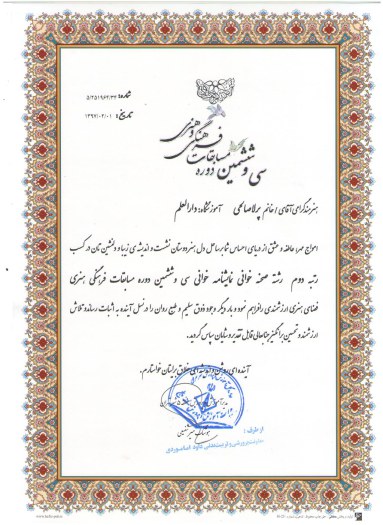 شماره: ۵/۲۵۱۹۶۲/۳۲
تاریخ: ۱۳۹۷/۰۲/۰۱
سی و ششمین دوره مسابقات فرهنگی و هنری
هنرمند گرامی آقای / خانم پرلا صالحی آموزشگاه: دارالعلم
امواج مهر، عاطفه و عشق از دریای احساس شما بر ساحل دل هنردوستان نشست و اندیشه‌ی زیبا و دلنشین تان در کسب
رتبه دوم رشته صحنه خوانی نمایشنامه خوانی سی و ششمین دوره مسابقات فرهنگی هنری
فضای هنری ارزشمندی را فراهم نمود و بار دیگر وجود ذوق سلیم و طبع روان را در نسل آینده به اثبات رساند و تلاش
ارزشمند و تحسین برانگیز جنابعالی قابل تقدیر و شایان سپاس گردید.
آینده‌ای روشن و اندیشه‌ای خلاق برایتان خواستارم.
از طرف: